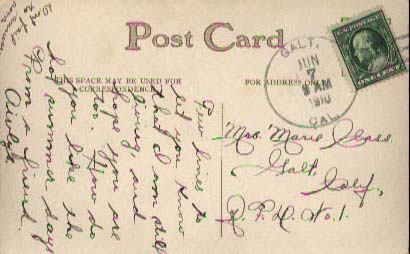 Post Card
THIS SPACE MAY BE USED FOR
CORRESPONDENCE
FOR ADDRESS ONLY
GALT,
JUN
7
8 AM
1910
CAL.
U.S. POSTAGE
ONE CENT
Few lines to
let you know
that I am still
living, and
hope you are
too. How do
you like the
hot summer days
From a friend
Mrs. Marie
Galt,
Calif,
R. F. D. No. 1.
Don't forget
to